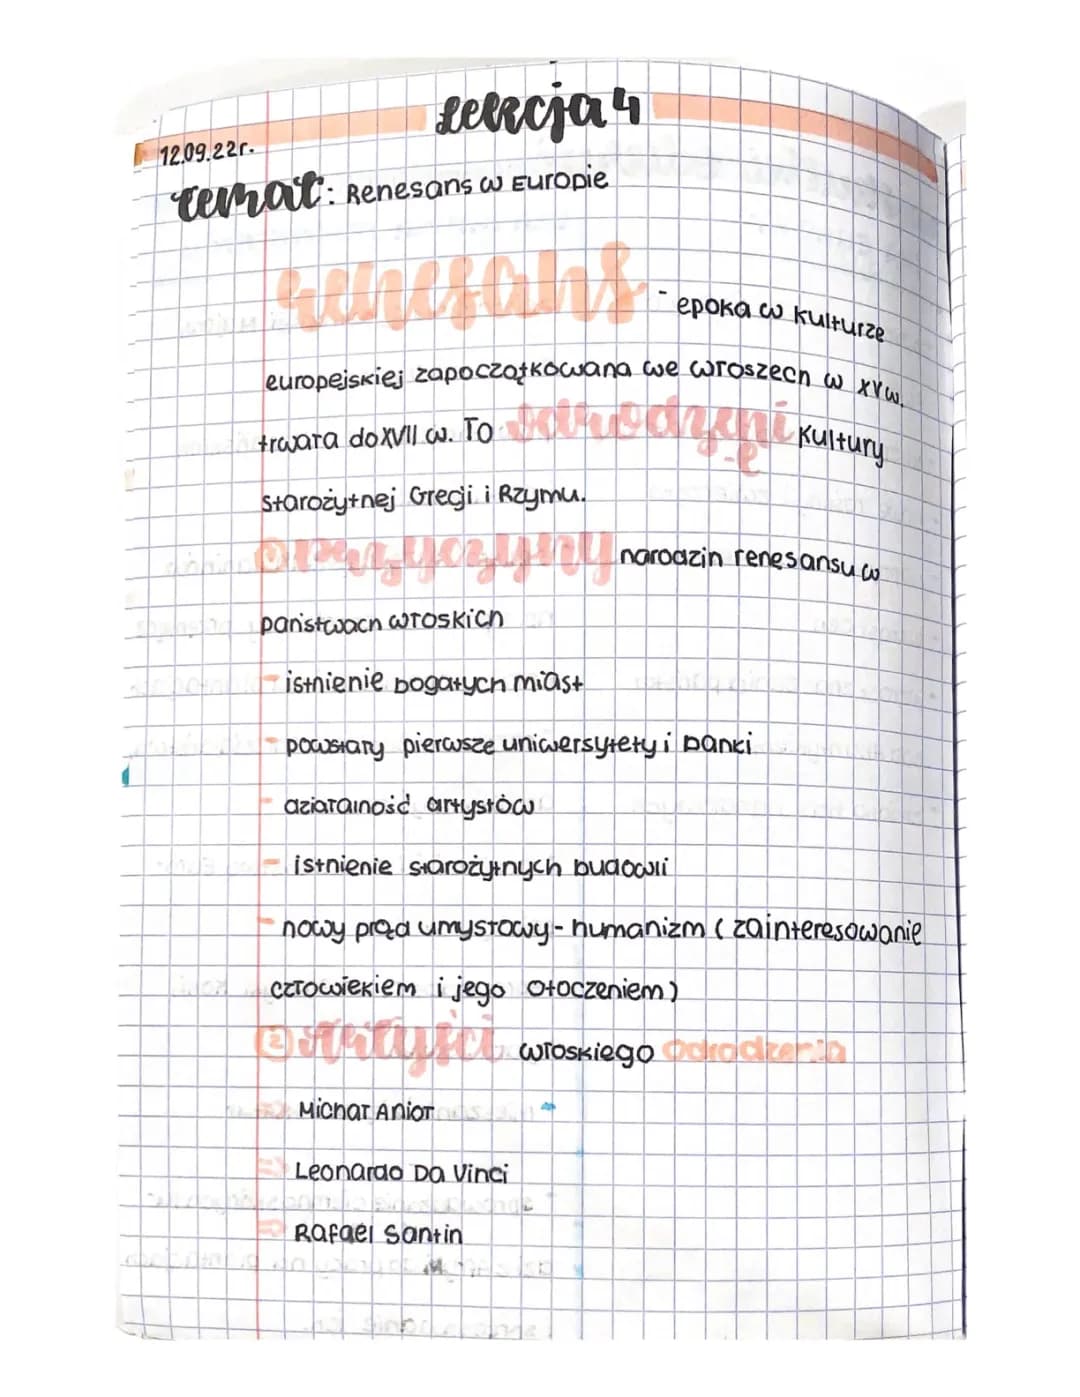 Lekcja 4
12.09.22r.
temat: Renesans w Europie
renesans - epoka w kulturze
europejskiej zapoczątkowana we włoszech w XV w.
trwała do XVII w. To odrodzeni-e kultury
starożytnej Grecji i Rzymu.
① Przyczyny narodzin renesansu w
państwach włoskich
- istnienie bogatych miast
- powstały pierwsze uniwersytety i banki
- działalność artystów
- istnienie starożytnych budowli
- nowy prąd umysłowy - humanizm (zainteresowanie
człowiekiem i jego otoczeniem)
② Artyści włoskiego odrodzenia
⇒ Michał Anioł
⇒ Leonardo Da Vinci
⇒ Rafael Santin